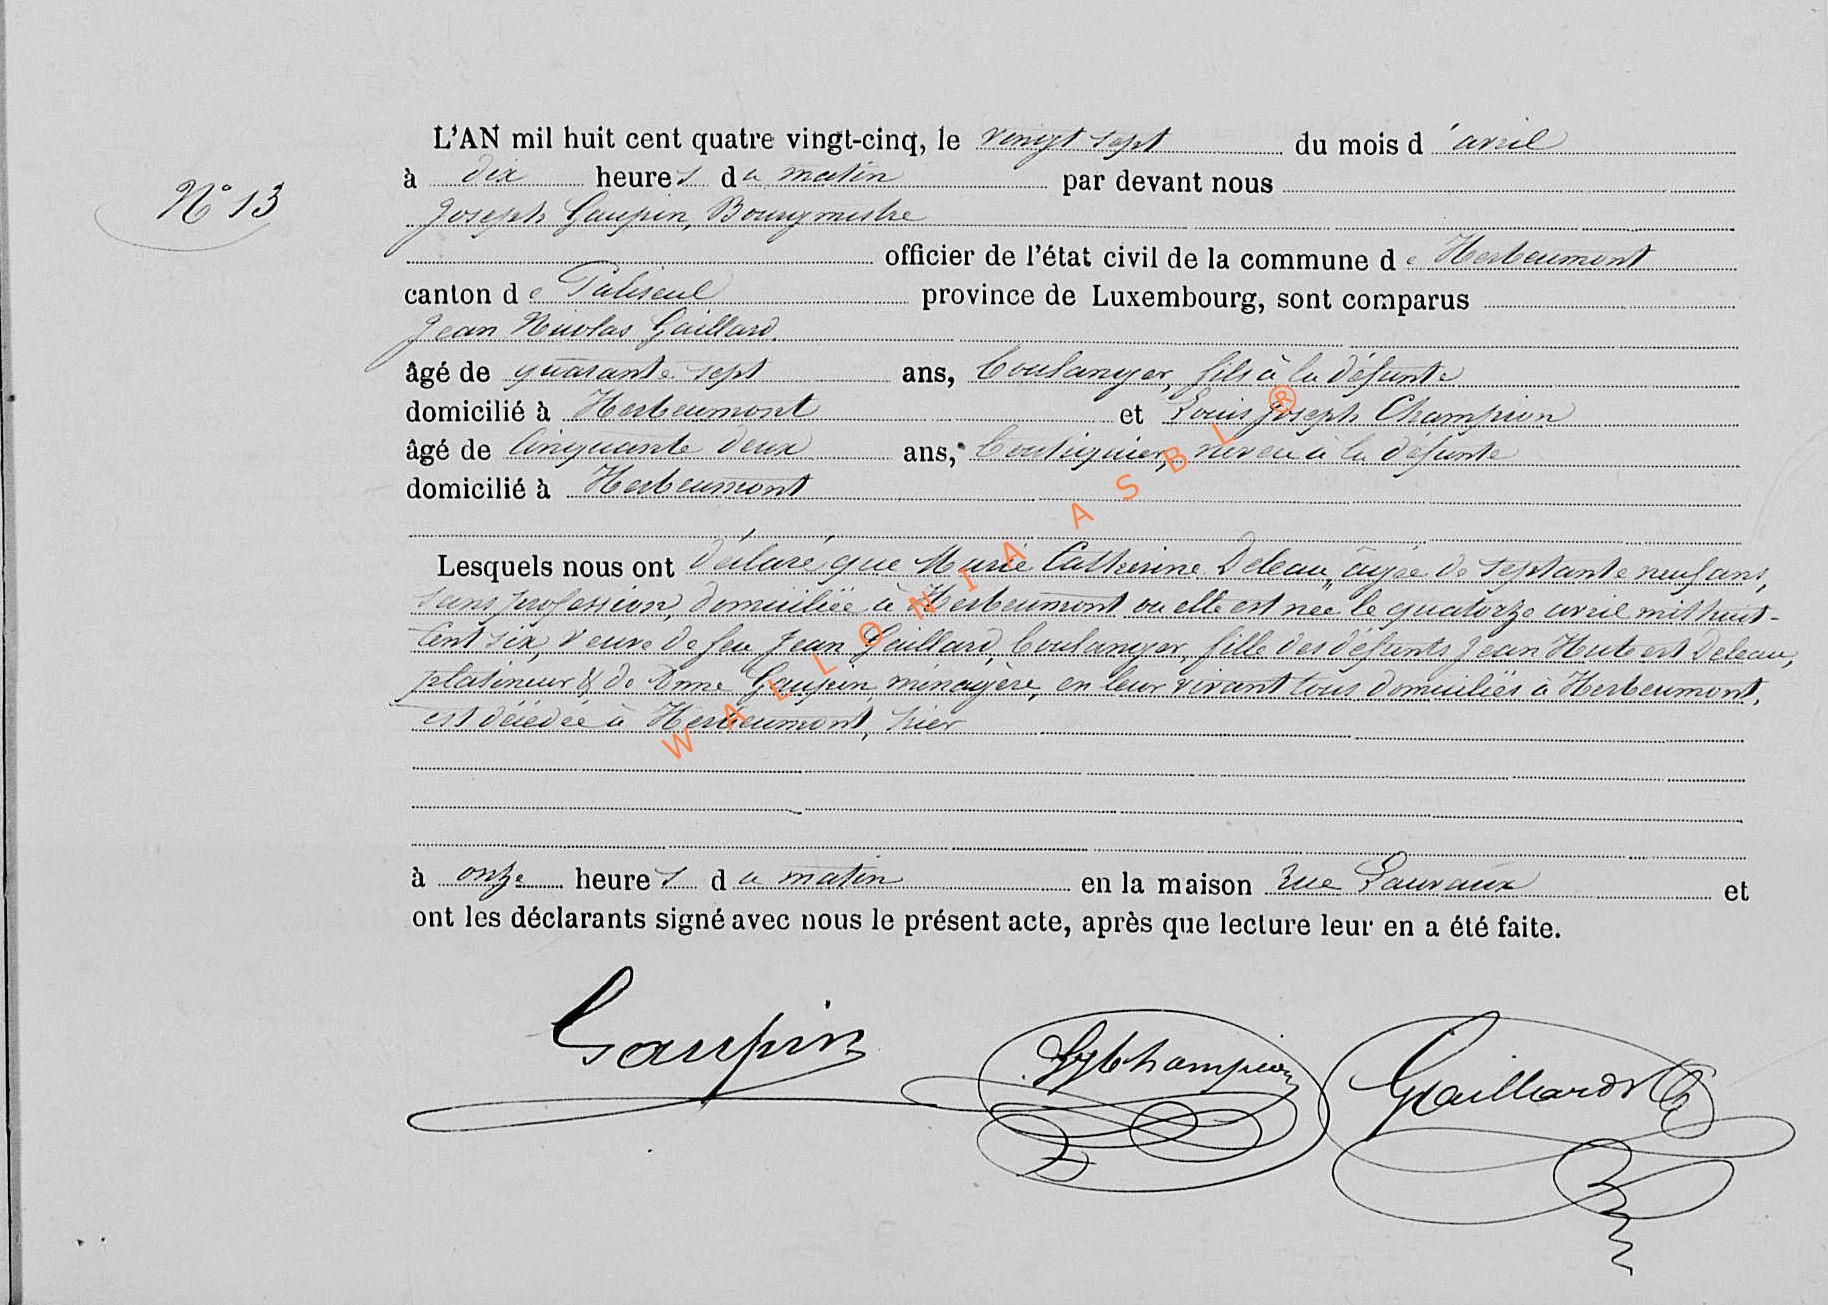 L'AN mil huit cent quatre vingt-cinq, le vingt sept du mois d'avril
N° 13
à dix heures du matin par devant nous
Joseph Gaupin, Bourgmestre
officier de l'état civil de la commune de Herbeumont
canton de Paliseul province de Luxembourg, sont comparus
Jean Nicolas Gaillard.
âgé de quarante sept ans, boulanger, fils à la défunte
domicilié à Herbeumont et Louis Joseph Champion
âgé de Cinquante deux ans, boutiquier, neveu à la défunte
domicilié à Herbeumont
Lesquels nous ont déclaré que Marie Catherine Deleau, âgée de septante neuf ans,
sans profession, domiciliée à Herbeumont où elle est née le quatorze avril mil huit-
cent six, veuve de feu Jean Gaillard, boulanger, fille des défunts Jean Hubert Deleau,
platineur & de Anne Gaupin, ménagère, en leur vivant tous domiciliés à Herbeumont,
est décédée à Herbeumont, hier
à onze heures du matin en la maison rue Lauvaux et
ont les déclarants signé avec nous le présent acte, après que lecture leur en a été faite.
Gaupin LJChampion Gaillard
WALLONIA ASBL ®